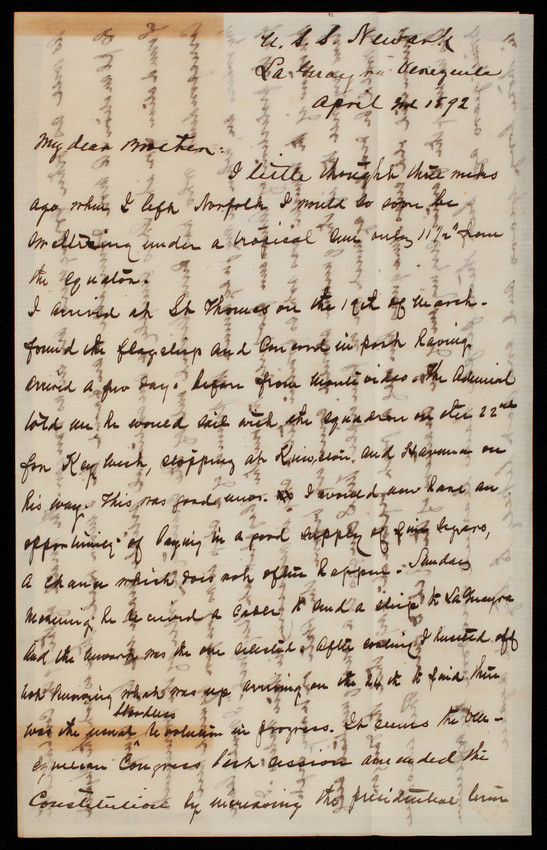 U. S. S. Newark
La Guayra Venezuela
April 2nd 1892
My dear Brother:
I little thought three weeks
ago when I left Norfolk I would so soon be
sweltering under a tropical sun only 11½° from
the equator.
I arrived at St Thomas on the 19th of March.
found the flagship and Concord in port having
arrived a few days before from Montevideo. The Admiral
told me he would sail with the squadron on the 22nd
for Key West, stopping at Kingston and Havana on
his way. This was good news. as I would now have an
opportunity of laying in a good supply of fine segars,
a chance which does not often happen. Sunday
morning he received a cable to send a ship to La Guayra
and the Newark was the one selected. After coaling I hustled off
not knowing what was up, arriving on the 24th to find there
bloodless
was the usual revolution in progress. It seems the Ven-
ezuelean Congress last session amended the
Constitution by increasing the presidential term